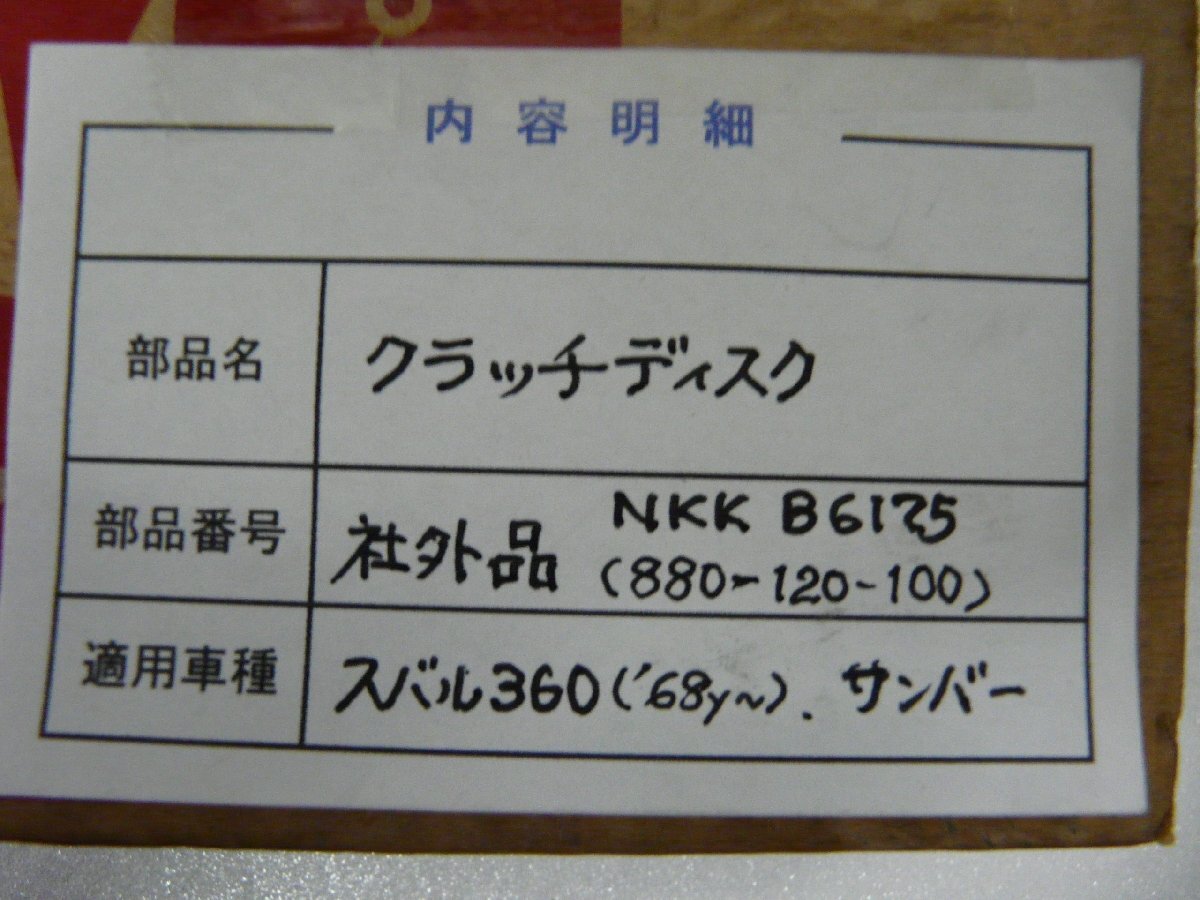 内容明細
部品名 クラッチディスク
部品番号 社外品 NKK B6175
(880-120-100)
適用車種 スバル360('68y~). サンバー